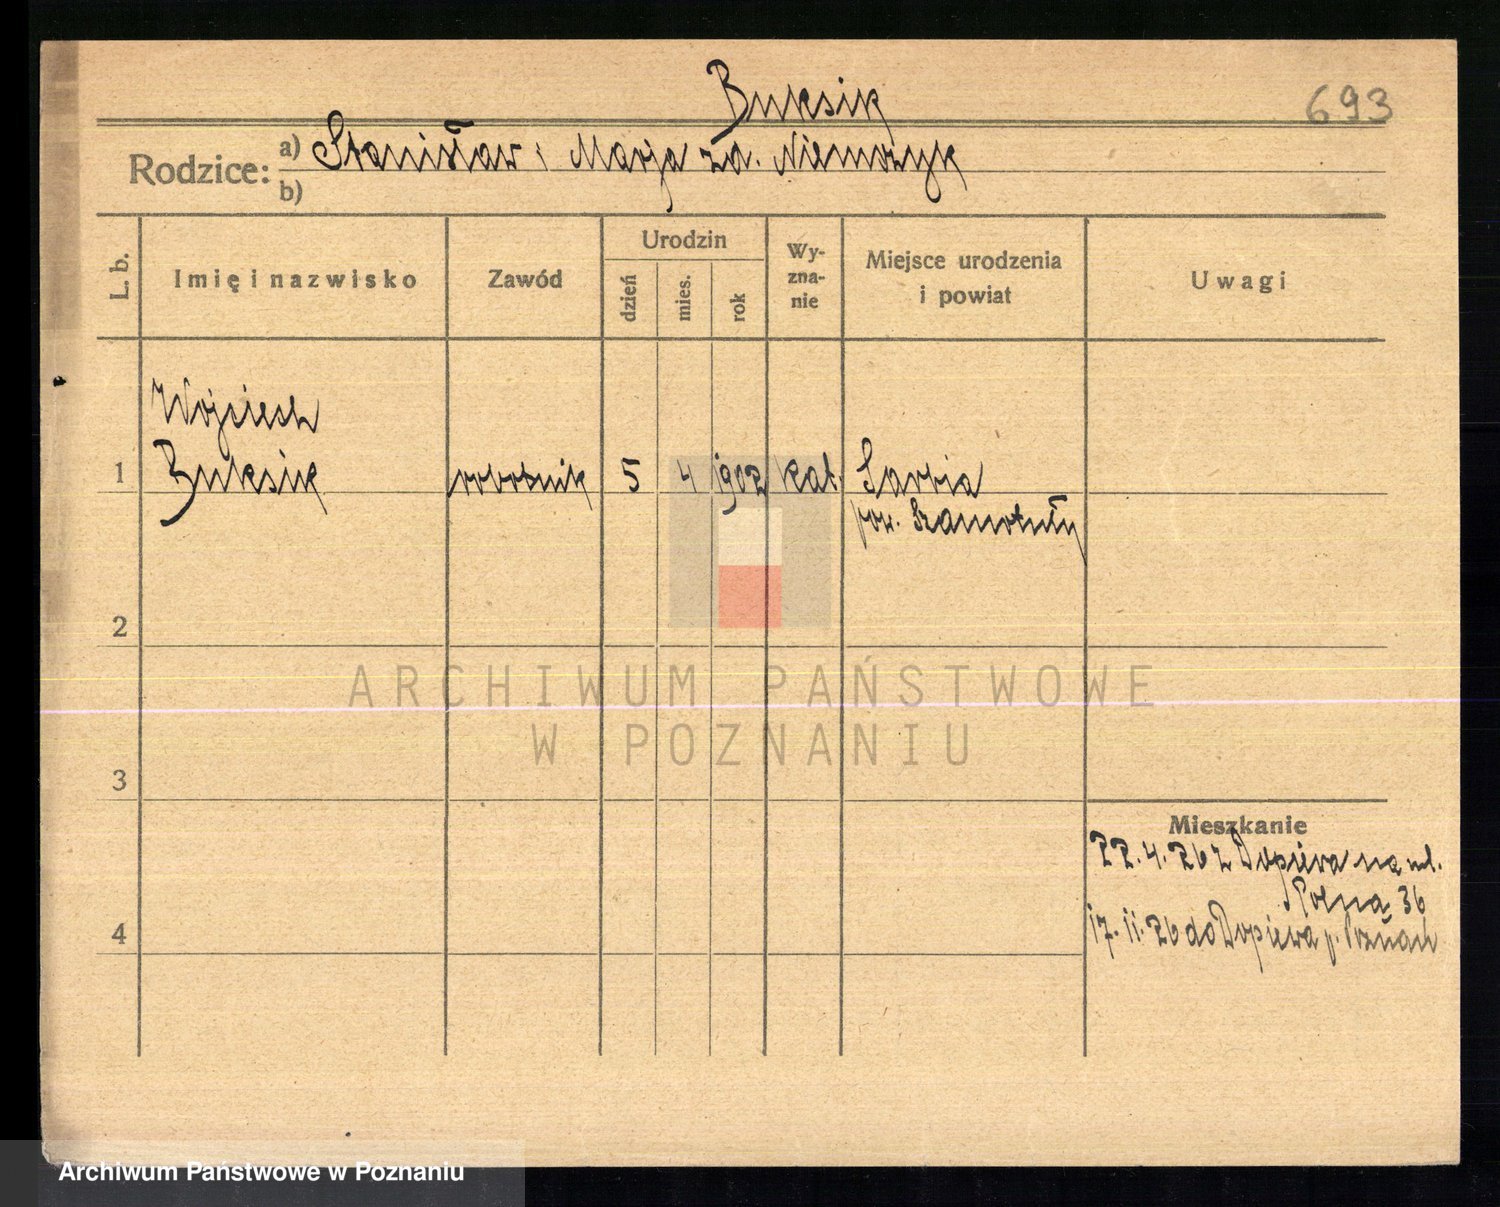 Buksik
693
Rodzice: a) Stanisław i Marja za. Niemożyk
b)
L. b.
Imię i nazwisko
Zawód
Urodzin
dzień
mies.
rok
Wy-
zna-
nie
Miejsce urodzenia
i powiat
Uwagi
Wojciech
1 Buksik robotnik 5 4 1902 kat. Sarbia
pow. Szamotuły
2
3
4
Mieszkanie
22.4.26 z Dopiewa na ul.
Polna 36
17.11.26 do Dopiewa p. Poznań
ARCHIWUM PAŃSTWOWE
W POZNANIU
Archiwum Państwowe w Poznaniu